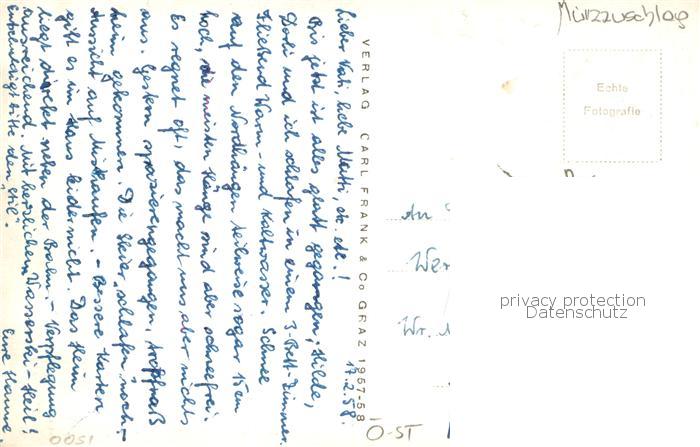 Mürzzuschlag
Echte
Fotografie
VERLAG CARL FRANK & Co GRAZ 1957-58
17.2.58.
Lieber Vati, liebe Mutti, etc. etc.!
Bis jetzt ist alles glatt gegangen; Hilde,
Dorli und ich schlafen in einem 3-Bett-Zimmer.
Fließend Warm- und Kaltwasser. Schnee
auf den Nordhängen teilweise sogar 15 cm
hoch, die meisten Hänge sind aber schneefrei.
Es regnet oft, das macht uns aber nichts
aus. Gestern spazierengegangen, tropfnaß
heim gekommen. Die Skier "schlafen" noch. -
Aussicht auf Misthaufen. - Bessere Karten
gibt es im Haus leider nicht. Das Heim
liegt direkt neben der Bahn. - Verpflegung
ausreichend. Mit herzlichem Wasserski-Heil!
Entschuldigt bitte den "Stil".
Eure Hanne
An
Wr.
privacy protection
Datenschutz
O-ST
0051